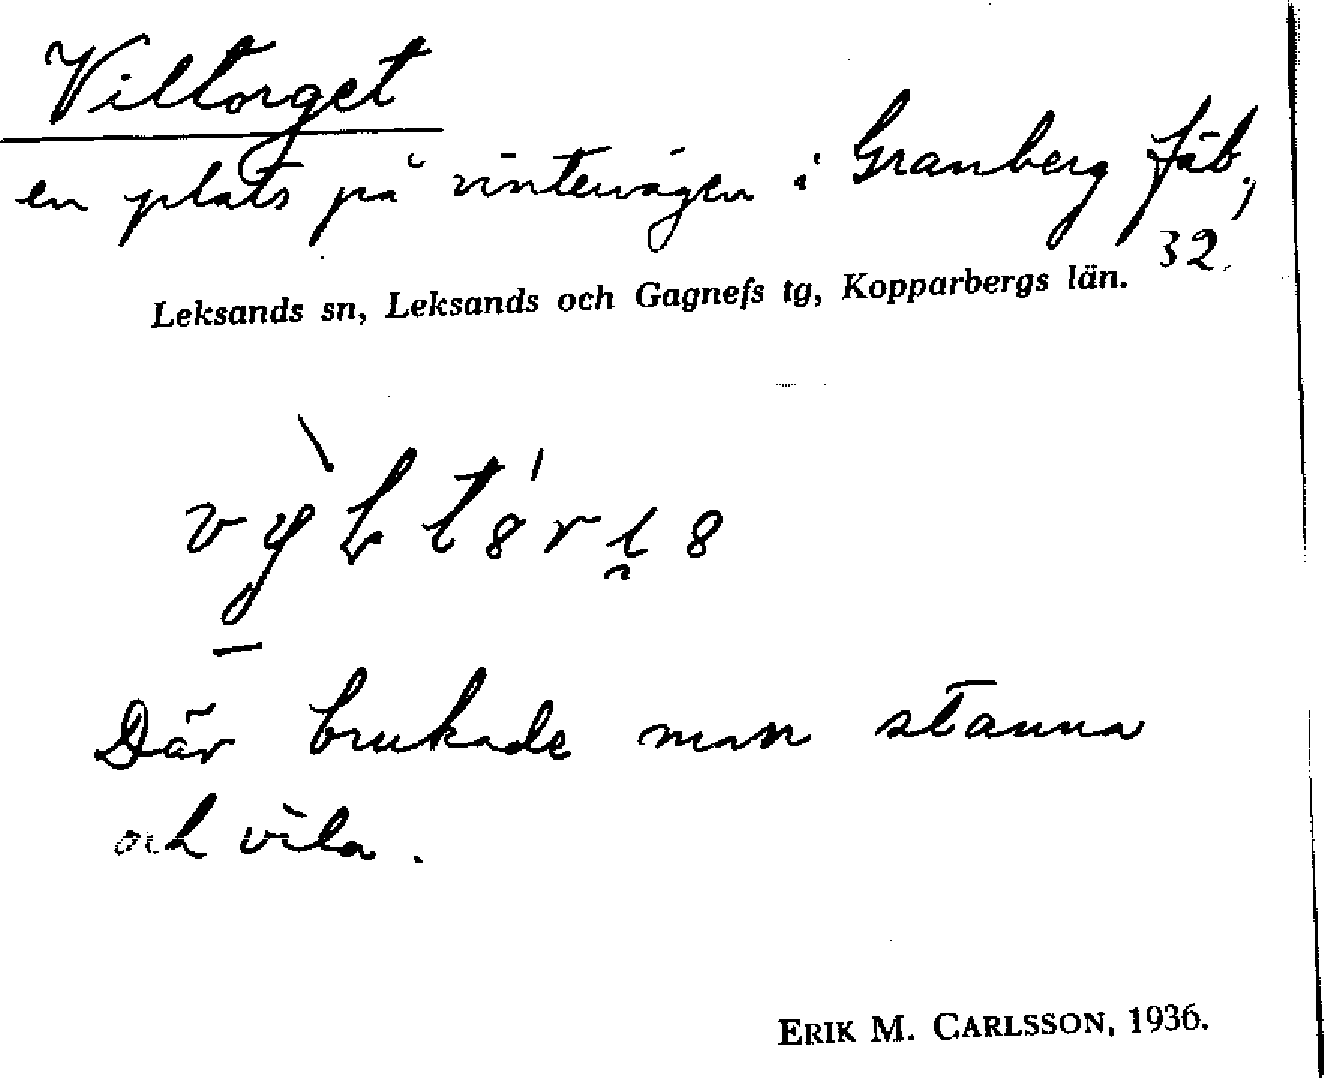 Viltorget
en plats på vintervägen i Granberg fäb.,
32.
Leksands sn, Leksands och Gagnefs tg, Kopparbergs län.
Där brukade man stanna
och vila.
ERIK M. CARLSSON, 1936.